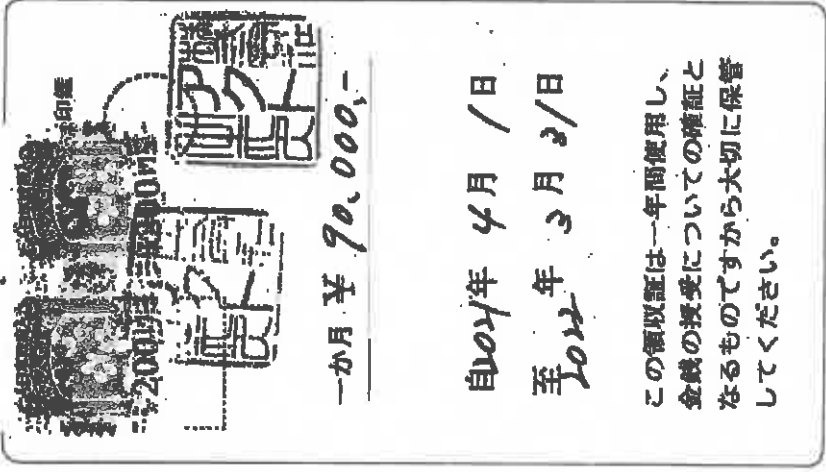 印鑑
200円
200円
一か月 ¥ 90,000,-
自2021年 4月 1日
至2022年 3月 31日
この領収証は一年間使用し、
金銭の授受についての確証と
なるものですから大切に保管
してください。